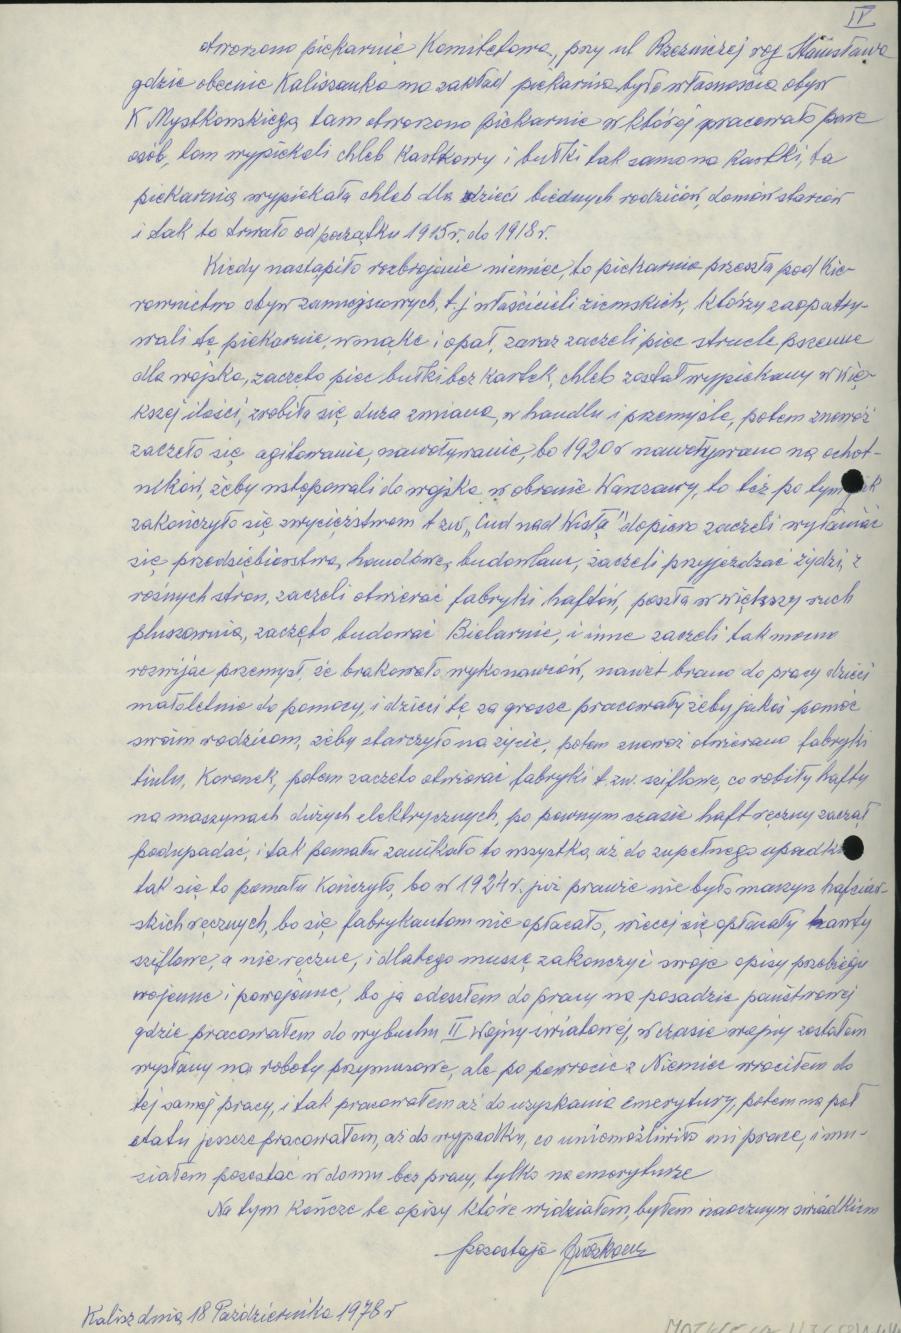 IV
otworzono piekarnię Komitetową, przy ul Rzeźniczej róg Stanisława
gdzie obecnie Kaliszanka ma zakład piekarnia była własnością obyw
K Mystkowskiego, tam otworzono piekarnie w której pracowało parę
osób, tam wypiekali chleb Kartkowy i bułki tak samo na Kartki, ta
piekarnia wypiekała chleb dla dzieci biednych rodziców, domów starców
i tak to trwało od początku 1915r. do 1918r.
Kiedy nastąpiło rozbrojenie niemiec, to piekarnia przeszła pod Kie-
rownictwo obyw zamiejscowych, t.j właścicieli ziemskich, którzy zaopatry-
wali tę piekarnie, w mąkę i opał, zaraz zaczeli piec strucle pszenne
dla wojska, zaczęto piec bułki bez kartek, chleb został wypiekany w wię-
kszej ilości, zrobiła się duża zmiana, w handlu i przemyśle, potem znowóż
zaczeło się agitowanie, nawoływanie, bo 1920r nawoływano na ochot-
ników, żeby wstępowali do wojska w obronie Warszawy, to też po tym jak
zakończyło się zwycięstwem t zw „Cud nad Wisłą" dopiero zaczeli wyłaniać
się przedsiebiorstwa, handlowe, budowlane, zaczeli przyjeżdżać żydzi, z
różnych stron, zaczeli otwierać fabryki haftów, poszła w większy ruch
pluszownia, zaczęto budować Bielarnie, i inne zaczeli tak mocno
rozwijac przemysł, że brakowało wykonawców, nawet brano do pracy dzieci
małoletnie do pomocy, i dzieci te za grosze pracowały żeby jakoś pomóc
swoim rodzicom, żeby starczyło na życie, potem znowóż otwierano fabryki
tiulu, Koronek, potem zaczęto otwierać fabryki t.zw. sziflowe, co robiły hafty
na maszynach dużych elektrycznych, po pewnym czasie haft ręczny zaczął
podupadać, i tak pomału zanikało to wszystko, aż do zupełnego upadku
tak się to pomału Kończyło, bo w 1924r. już prawie nie było maszyn hafciar-
skich ręcznych, bo się fabrykantom nie opłacało, wiecej się opłacały hawty
sziflowe, a nie ręczne, i dlatego muszę zakończyć swoje opisy przebiegu
wojenne i powojenne, bo ja odeszłem do pracy na posadzie państwowej
gdzie pracowałem do wybuchu II Wojny światowej, w czasie wojny zostałem
wysłany na roboty przymusowe, ale po powrocie z Niemiec wróciłem do
tej samej pracy, i tak pracowałem aż do uzyskania emerytury, potem na poł
etatu jeszcze pracowałem, aż do wypadku, co uniemożliwiło mi prace, i mu-
siałem pozostać w domu bez pracy, tylko na emeryturze
Na tym kończe te opisy które widziałem, byłem naocznym świadkiem
pozostaje
Kalisz dnia 18 Października 1978 r